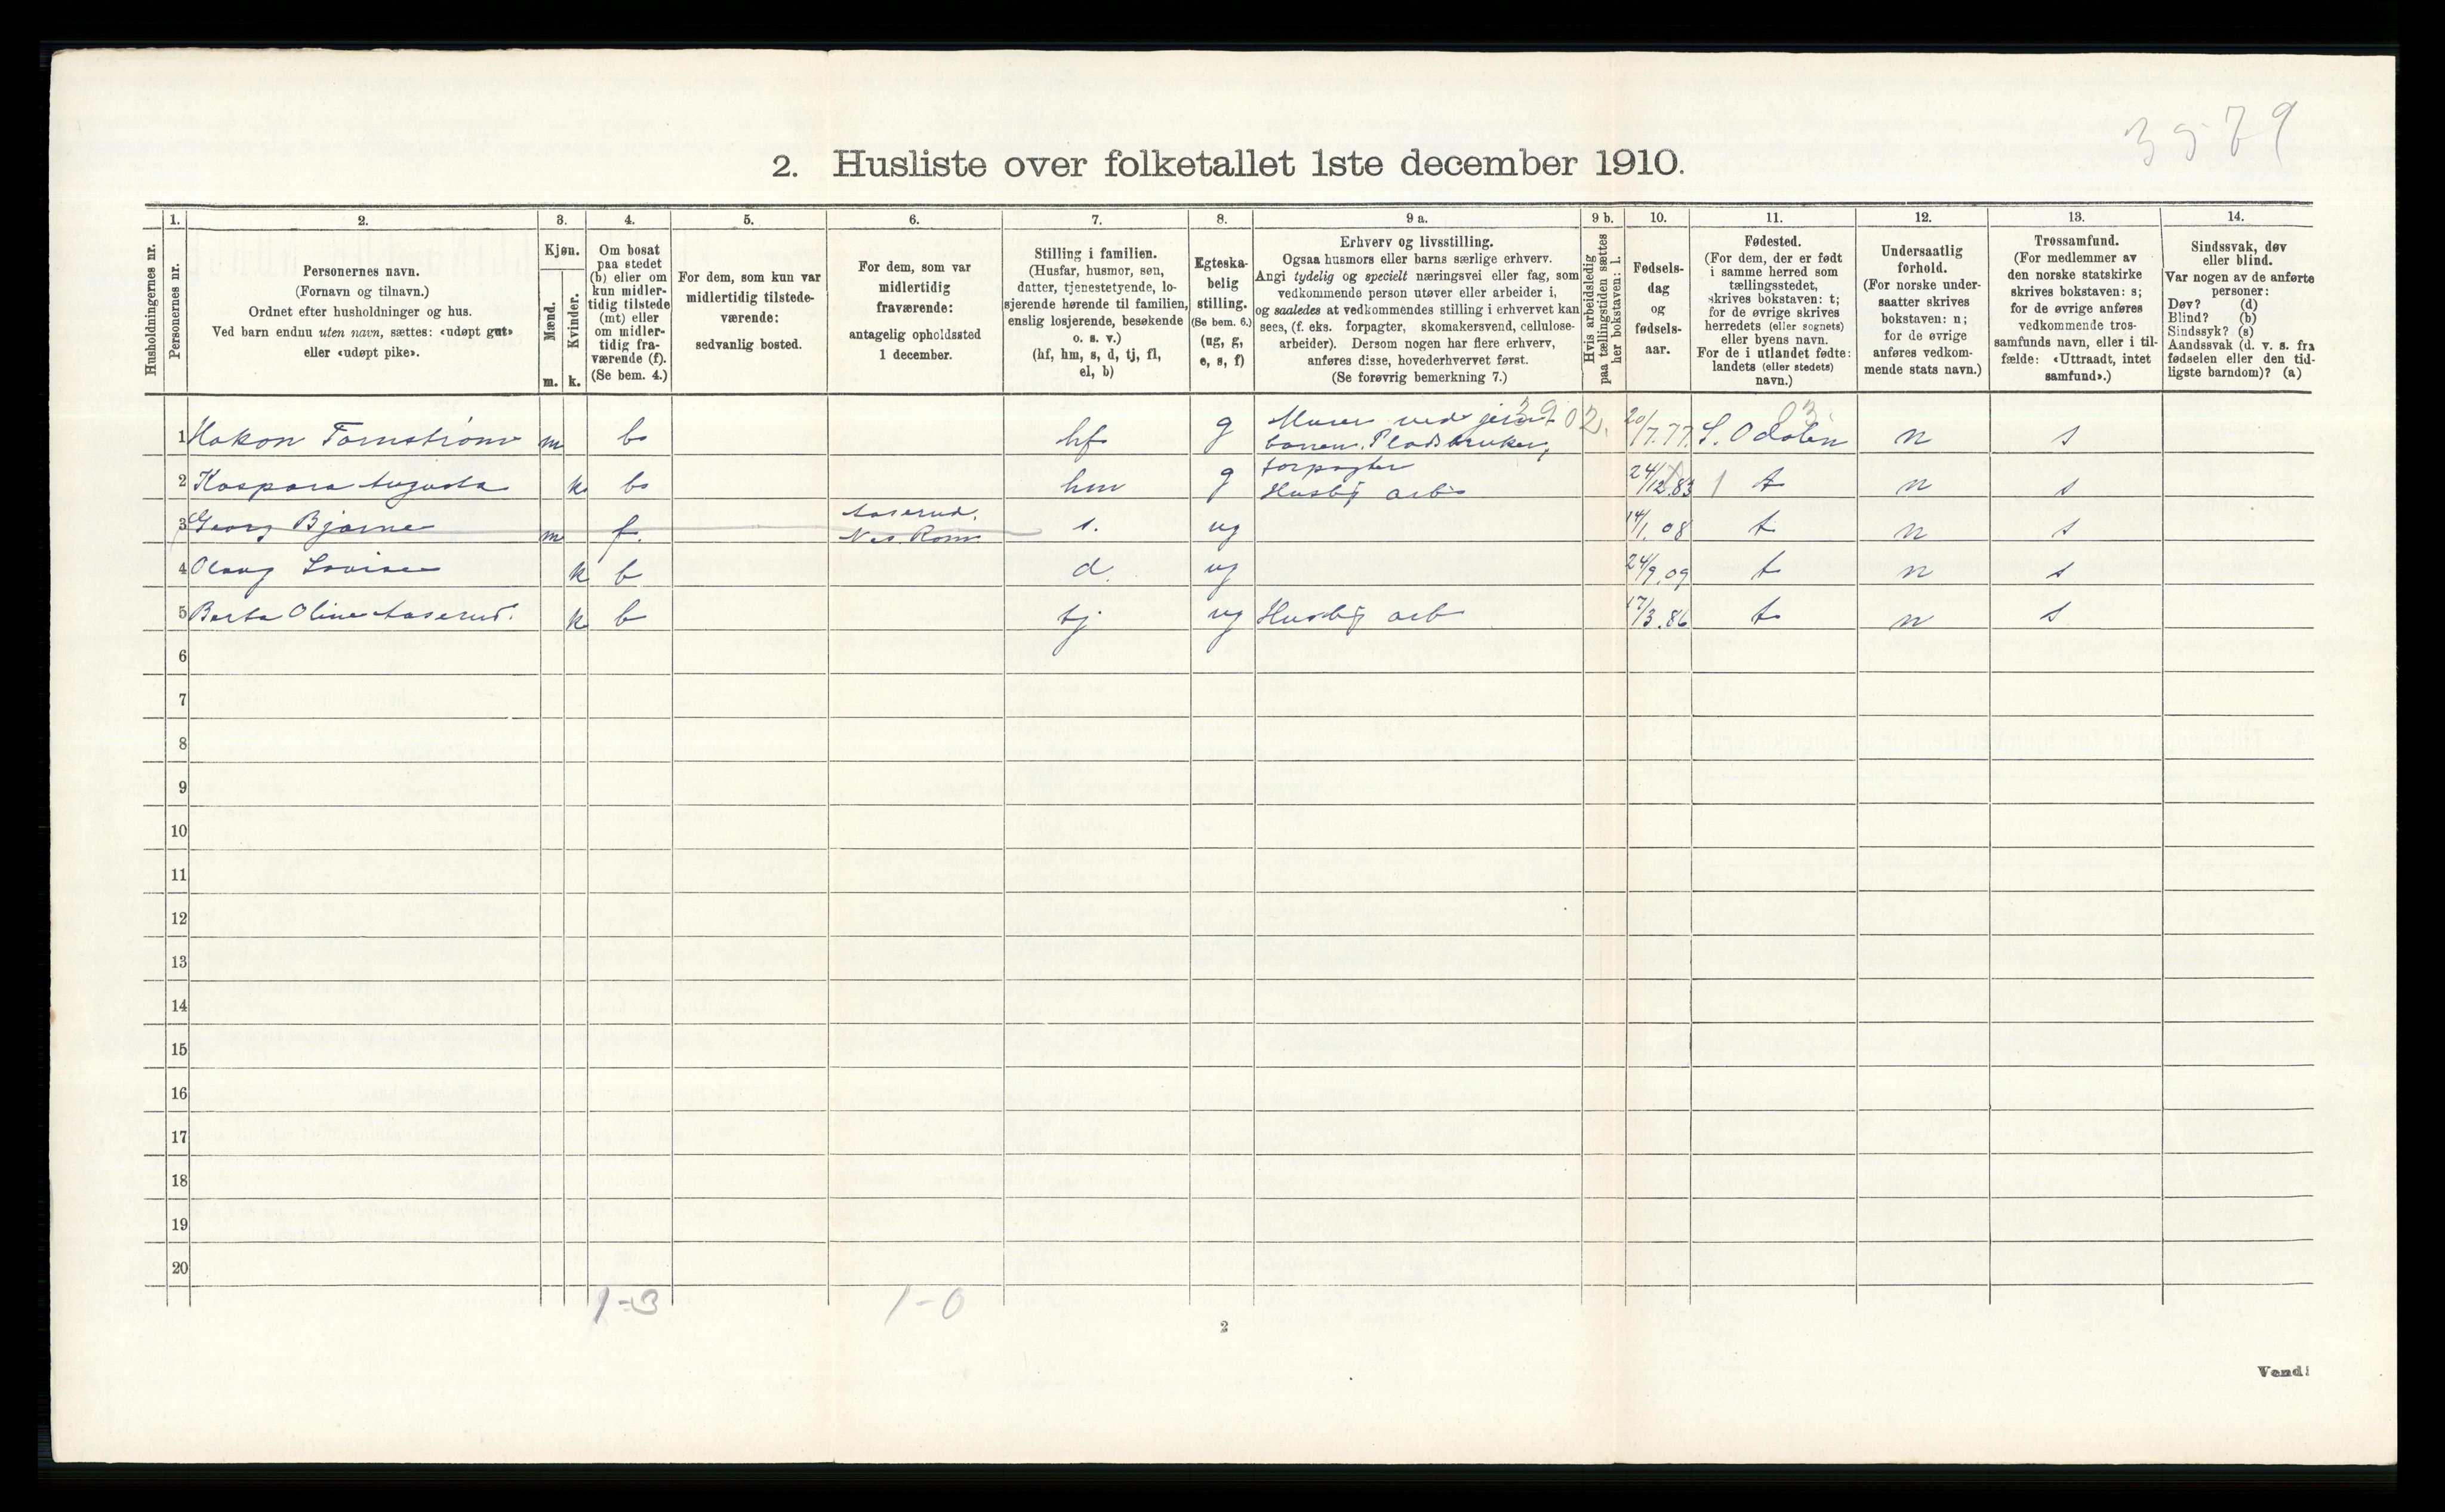 3579
2. Husliste over folketallet 1ste december 1910.
Husholdningernes nr.
1.
Personernes nr.
2.
Personernes navn.
(Fornavn og tilnavn.)
Ordnet efter husholdninger og hus.
Ved barn endnu uten navn, sættes: «udøpt gut»
eller «udøpt pike».
3.
Kjøn.
Mænd.
m.
Kvinder.
k.
4.
Om bosat
paa stedet
(b) eller om
kun midler-
tidig tilstede
(mt) eller
om midler-
tidig fra-
værende (f).
(Se bem. 4.)
5.
For dem, som kun var
midlertidig tilstede-
værende:
sedvanlig bosted.
6.
For dem, som var
midlertidig
fraværende:
antagelig opholdssted
1 december.
7.
Stilling i familien.
(Husfar, husmor, søn,
datter, tjenestetyende, lo-
sjerende hørende til familien,
enslig losjerende, besøkende
o. s. v.)
(hf, hm, s, d, tj, fl,
el, b)
8.
Egteska-
belig
stilling.
(Se bem. 6.)
(ug, g,
e, s, f)
9 a.
Erhverv og livsstilling.
Ogsaa husmors eller barns særlige erhverv.
Angi tydelig og specielt næringsvei eller fag, som
vedkommende person utøver eller arbeider i,
og saaledes at vedkommendes stilling i erhvervet kan
sees, (f. eks. forpagter, skomakersvend, cellulose-
arbeider). Dersom nogen har flere erhverv,
anføres disse, hovederhvervet først.
(Se forøvrig bemerkning 7.)
9 b.
Hvis arbeidsledig
paa tællingstiden sættes
her bokstaven: l.
10.
Fødsels-
dag
og
fødsels-
aar.
11.
Fødested.
(For dem, der er født
i samme herred som
tællingsstedet,
skrives bokstaven: t;
for de øvrige skrives
herredets (eller sognets)
eller byens navn.
For de i utlandet fødte:
landets (eller stedets)
navn.)
12.
Undersaatlig
forhold.
(For norske under-
saatter skrives
bokstaven: n;
for de øvrige
anføres vedkom-
mende stats navn.)
13.
Trossamfund.
(For medlemmer av
den norske statskirke
skrives bokstaven: s;
for de øvrige anføres
vedkommende tros-
samfunds navn, eller i til-
fælde: «Uttraadt, intet
samfund».)
14.
Sindssvak, døv
eller blind.
Var nogen av de anførte
personer:
Døv? (d)
Blind? (b)
Sindssyk? (s)
Aandssvak (d. v. s. fra
fødselen eller den tid-
ligste barndom)? (a)
1 Hakon Tørnstrøm m b hf g Murer ved jern- 20/7.77. S. Odalen n s
banen. Pladsbruker,
03.
forpagter
2 Kaspara Augusta k b hm g Husly arb 24/12.83 1 t n s
3 Georg Bjarne m f. Aaserud. Nes. Rom. s. ug 14/1.08 t n s
4 Olaug Lovise k b d. ug 24/9.09 t n s
5 Berta Oline Aaserud. k b tj ug Husly arb 17/3.86 t n s
6
7
8
9
10
11
12
13
14
15
16
17
18
19
20
1-3
1-0
2
Vend!